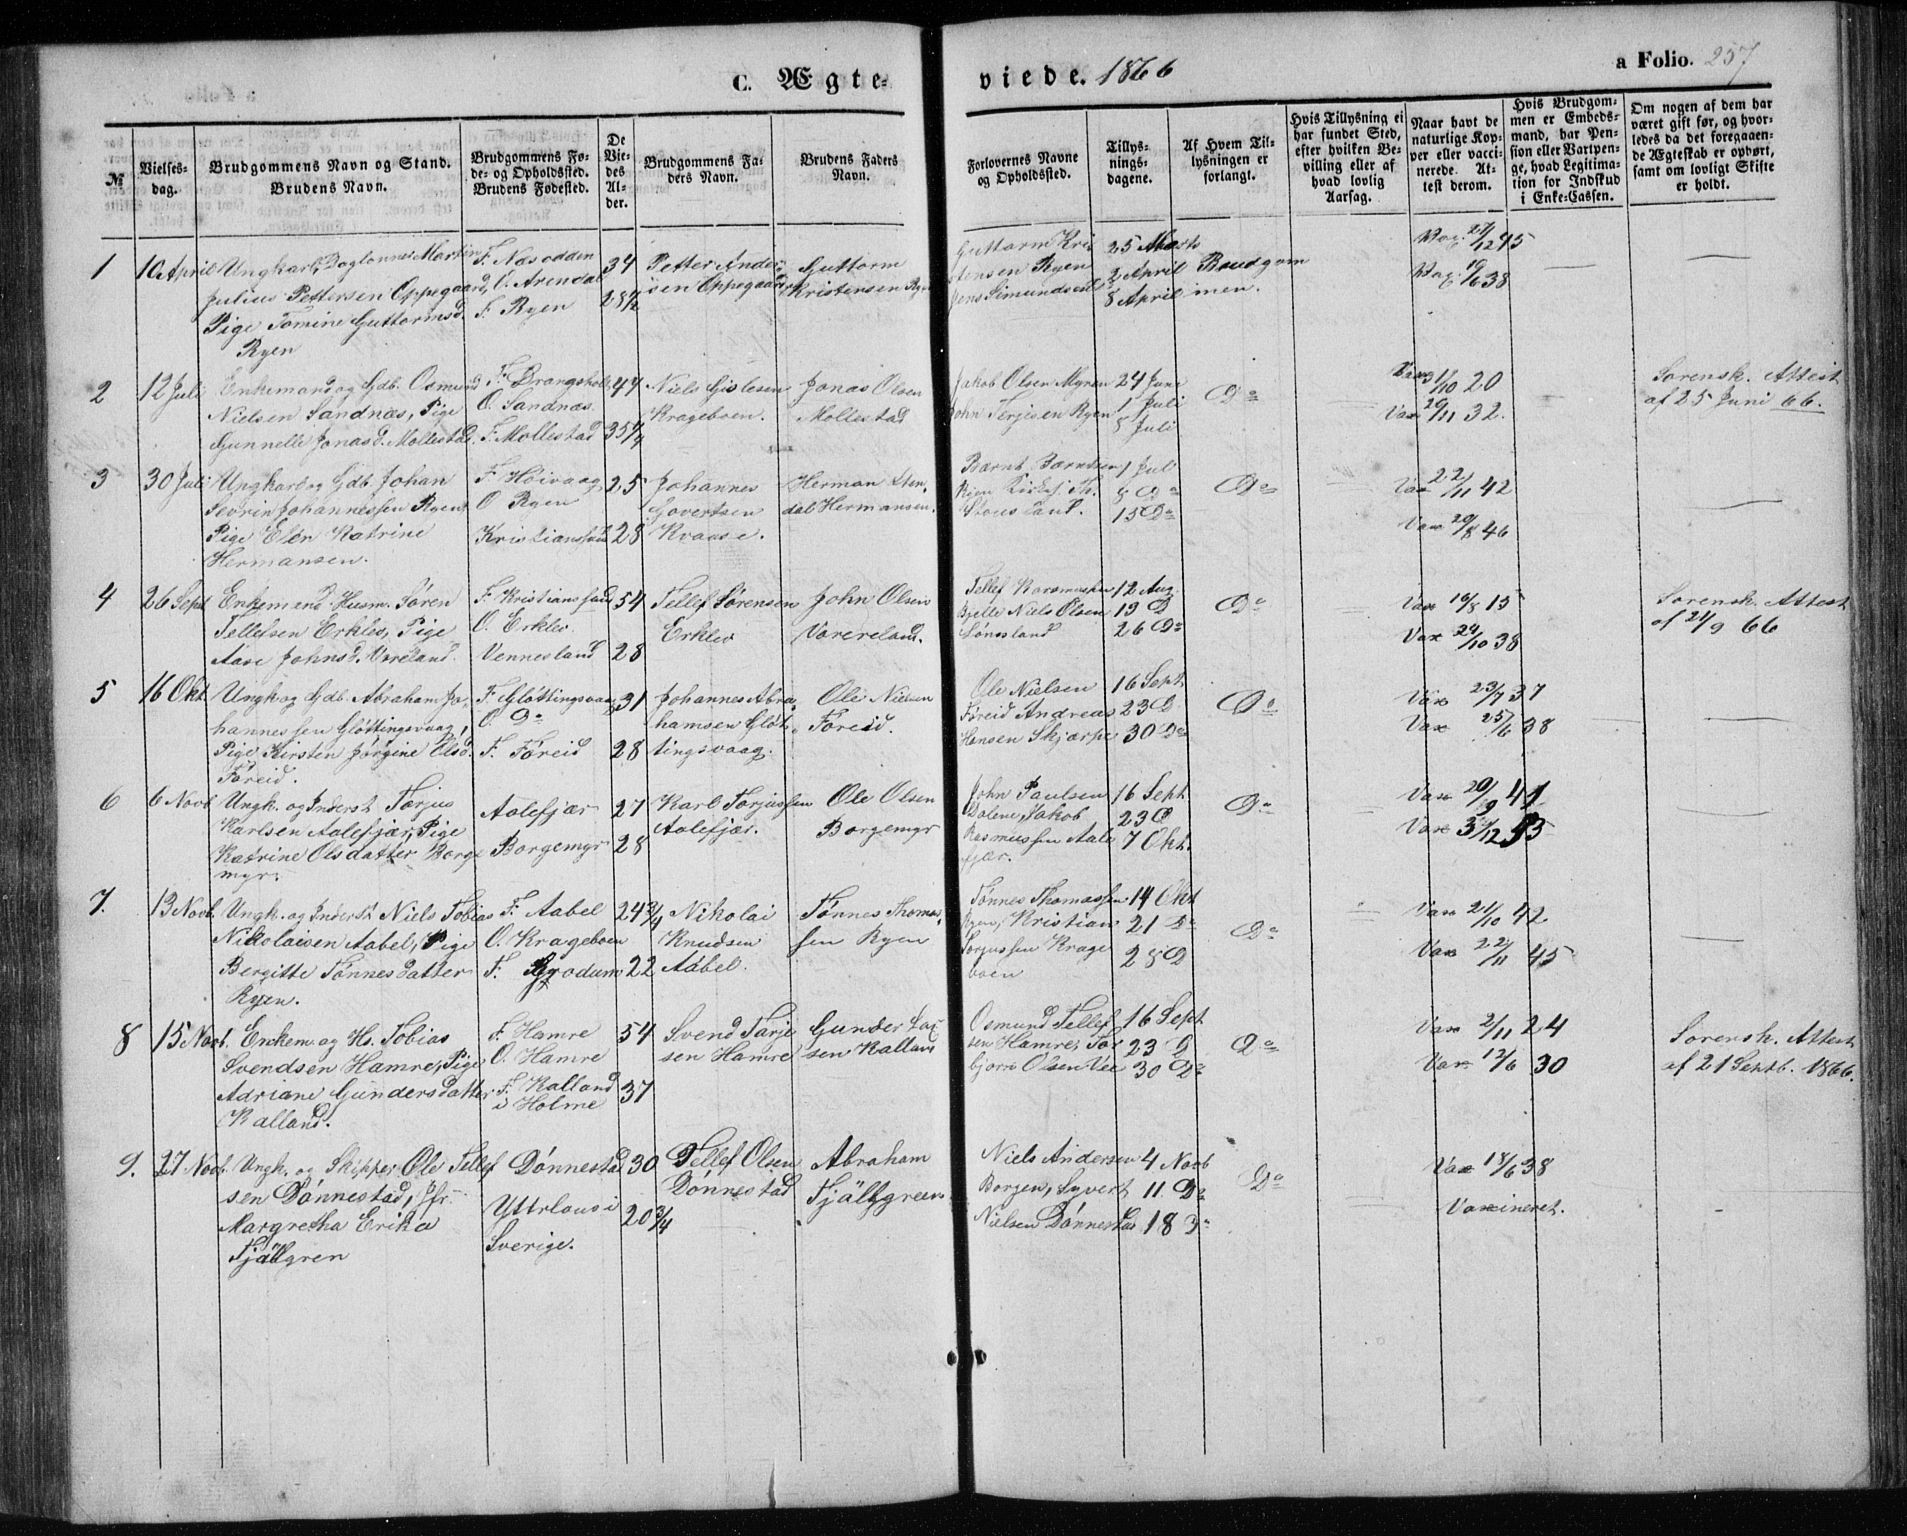 C. Ægte-
viede. 1866
a Folio. 257
№
Vielses-
dag.
Brudgommens Navn og Stand.
Brudens Navn.
Brudgommens Fø-
de- og Opholdssted.
Brudens Fødested.
De
Vie-
des
Al-
der.
Brudgommens Fa-
ders Navn.
Brudens Faders
Navn.
Forlovernes Navne
og Opholdssted.
Tillys-
nings-
dagene.
Af Hvem Til-
lysningen er
forlangt.
Hvis Tillysning ei
har fundet Sted,
efter hvilken Be-
villing eller af
hvad lovlig
Aarsag.
Naar havt de
naturlige Kop-
per eller vacci-
nerede. At-
test derom.
Hvis Brudgom-
men er Embeds-
mand, har Pen-
sion eller Vartpen-
ge, hvad Legitima-
tion for Indskud
i Enke-Cassen.
Om nogen af dem har
været gift før, og hvor-
ledes da det foregaaen-
de Ægteskab er ophørt,
samt om lovligt Skifte
er holdt.
1
10 April
Ungkarl, Daglønner Martin
Julius Pettersen Oppegaard,
Pige Tomine Guttormsd.
Ryen
F. Næsodden
O. Arendal
F. Ryen
34
28 1/2
Petter Ander-
sen Oppegaard
Guttorm
Kristensen Ryen
Guttorm Kri
stensen Ryen
25 Marts
2 April
8 April
Brudgom
men.
12 45
38
2
12 Juli
Enkemand og Gdb. Osmund
Nielsen Sandnæs, Pige
Gunnelle Jonasd. Mollestad.
F. Drangsholt
O. Sandnæs.
F. Mollestad
47
35
Niels Gislesen
Krageboen.
Jonas Olsen
Mollestad
Jakob Olsen Myren
John Terjesen Ryen
24 Juni
1 Juli
8 Juli
Do
Vax 31/10 20
Vax 20/11 32.
Sorensk. Attest
af 25 Juni 66.
3
30 Juli
Ungkarl og Gdb. Johan
Severin Johannessen Ryen,
Pige Elen Katrine
Hermansen.
F. Høivaag
O Ryen
Kristianssand
25
28
Johannes
Govertsen
Kvaase.
Herman Sten-
dal Hermansen.
Bernt Berntsen
1 Juli
8 Do
15 Do
Do
Vax 22/11 42
Vax 20/8 46
4
26 Sept
Enkemand Husm. Søren
Tellefsen Erklev, Pige
Aase Johnsd. Vereland.
F. Kristianssand
O. Erklev
Vennesland
54
28
Tellef Sørensen
Erklev
John Olsen
Vereland.
Tellef Rasmussen
Bjelle Niels Olsen
Lønnesland
12 Aug.
19 D
26 Do
Do
Vax 16/8 15
Vax 24/10 38
Sorensk. Attest
af 21/9 66
5
16 Okt.
Ungk og Gdb. Abraham Jo-
hannessen Gløttingsvaag,
Pige Kirsten Jørgine Olsd.
Føreid.
F. Gløttingsvaag
O. Do
F. Føreid
31
28
Johannes Abra-
hamsen Gløt-
tingsvaag.
Ole Nielsen
Føreid.
Ole Nielsen
Føreid Andreas
Hansen Skjærpe
16 Sept
23 D
30 Do
Do
Vax 23/7 37
Vax 25/6 38
6
6 Novb
Ungk. og Inderst Tarjus
Karlsen Aalefjær, Pige
Katrine Olsdatter Borge
myr.
Aalefjær
Borgemyr
27
28
Karl Tarjussen
Aalefjær.
Ole Olsen
Borgemyr
John Paulsen
Dolene, Jakob
Rasmussen Aale
fjær.
16 Sept
23 D
7 Okt.
Do
Vax 20/9 41
7.
13 Novb.
Ungk. og Inderst Niels Tobias
Nikolaisen Aabel, Pige
Bergitte Tønnesdatter
Ryen.
F. Aabel
O. Krageboen
F. Grodum
24 3/4
22
Nikolai
Knudsen
Aabel.
Tønnes Thomas-
sen Ryen
Tønnes Thomassen
Ryen, Kristian
Torjussen Krage
boen
14 Okt
21 Do
28 D
Do
Vax 21/10 42
Vax 22/11 45
8
15 Novb.
Enkem. og H. Tobias
Svendsen Hamre, Pige
Adriane Gundersdatter
Kalland.
F. Hamre
O. Hamre
F. Kalland
i Holme
54
37
Svend Tarje
sen Hamre
Gunder
sen Kalland
Osmund Tellef
sen Hamre, Tor
bjørn Olsen Vee
16 Sept
23 D
30 Do
Do
Vax 2/11 24
Vax 12/6 30
Sorensk. Attest
af 21 Septb. 1866.
9.
27 Novb.
Ungk. og Skipper Ole Tellef
sen Dønnestad, Jfr.
Margretha Erika
Fjällgren
Dønnestad
i
Sverige.
30
20 3/4
Tellef Olsen
Dønnestad
Abraham
Fjällgreen
Niels Andersen
Borgen, Syvert
Nielsen Dønnestad
4 Novb
11. Do
18 Do
Do
Vax 18/6 38
Vaxineret.